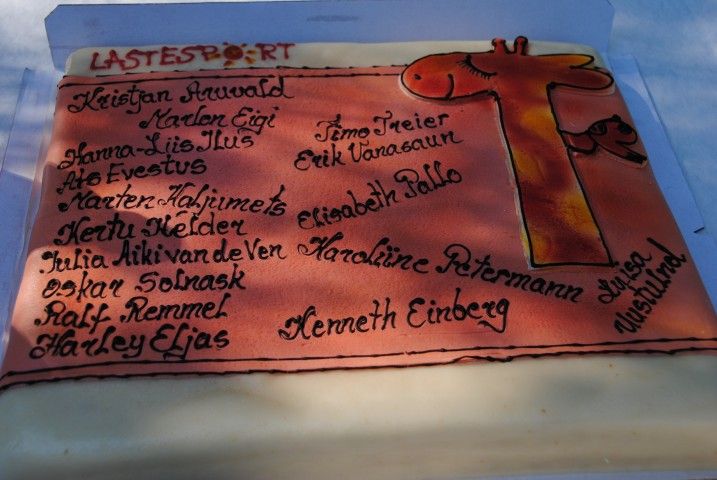 LASTESPORT
Kristjan Aruvald
Marlon Eigi
Hanna-Liis Ilus
Ats Evestus
Marten Haljumets
Kertu Kelder
Julia Aiki van de Ven
Oskar Solnask
Ralf Remmel
Harley Eljas
Timo Treier
Erik Vanasaun
Elisabeth Pallo
Karoliine Petermann
Kenneth Einberg
Luisa
Uustulnd